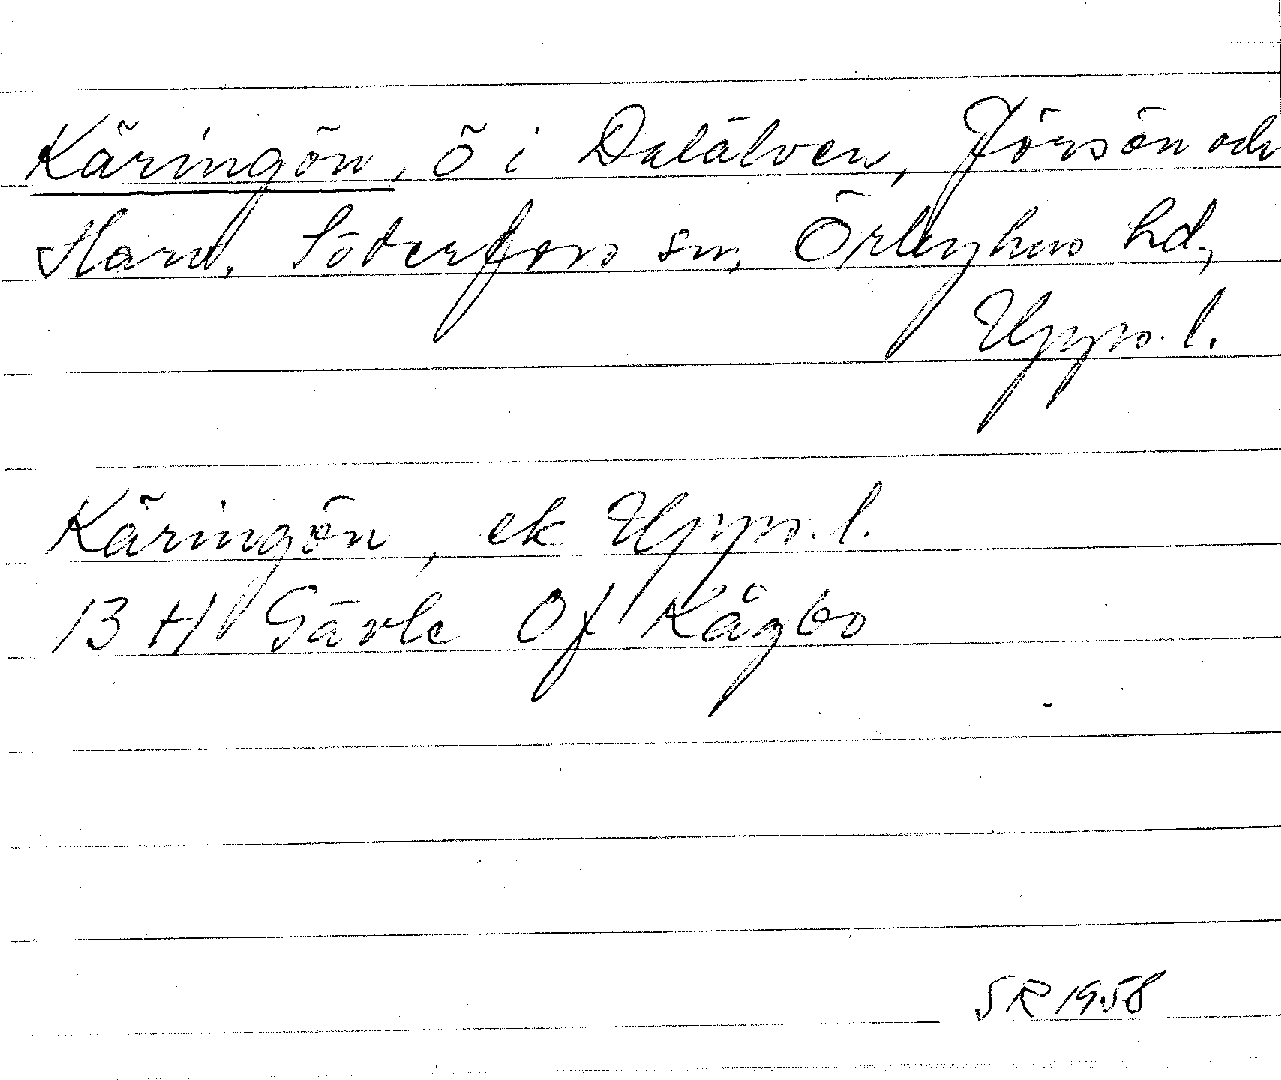 Käringön, ö i Dalälven, Jörsön och
Marn, Söderfors sn, Örbyhus hd,
Upps. l.
Käringön, ek Upps. l.
13 H Gävle 0f Kågbo
SR 1958